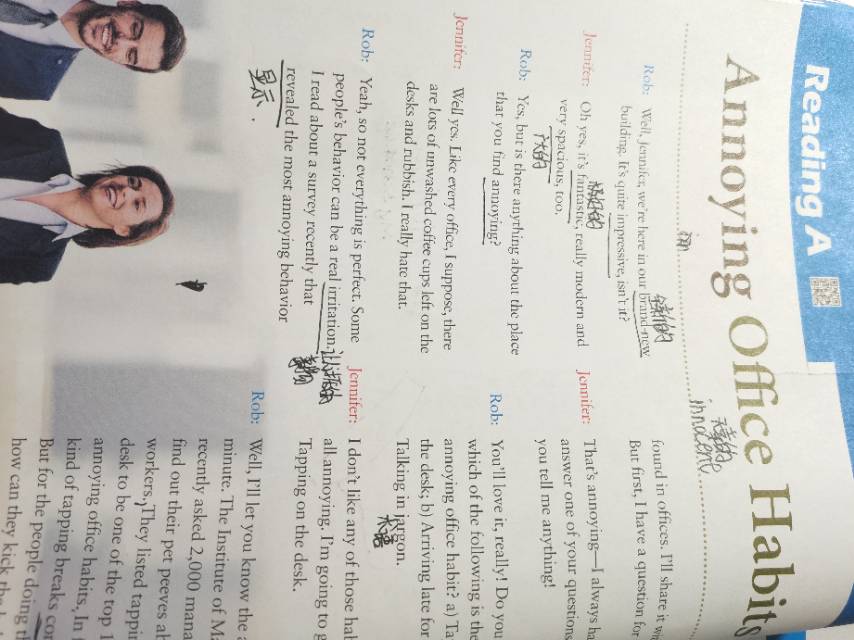 Reading A
Annoying Office Habits
innocent
im
Rob: Well, Jennifer, we're here in our brand-new
全新的
building. It's quite impressive, isn't it?
Jennifer: Oh yes, it's fantastic, really modern and
very spacious, too.
大的
Rob: Yes, but is there anything about the place
that you find annoying?
Jennifer: Well yes. Like every office, I suppose, there
are lots of unwashed coffee cups left on the
desks and rubbish. I really hate that.
Rob: Yeah, so not everything is perfect. Some
people's behavior can be a real irritation.
I read about a survey recently that
revealed the most annoying behavior
显示.
found in offices. I'll share it
But first, I have a question for
Jennifer: That's annoying—I always
answer one of your questions
you tell me anything!
Rob: You'll love it, really! Do you
which of the following is the
annoying office habit? a)
the desk; b) Arriving late for
Talking in jargon.
术语
Jennifer: I don't like any of those
all annoying. I'm going to
Tapping on the desk.
Rob: Well, I'll let you know the
minute. The Institute of
recently asked 2,000
find out their pet peeves
workers. They listed
desk to be one of the top
annoying office habits. In
kind of tapping breaks
But for the people doing
how can they kick the